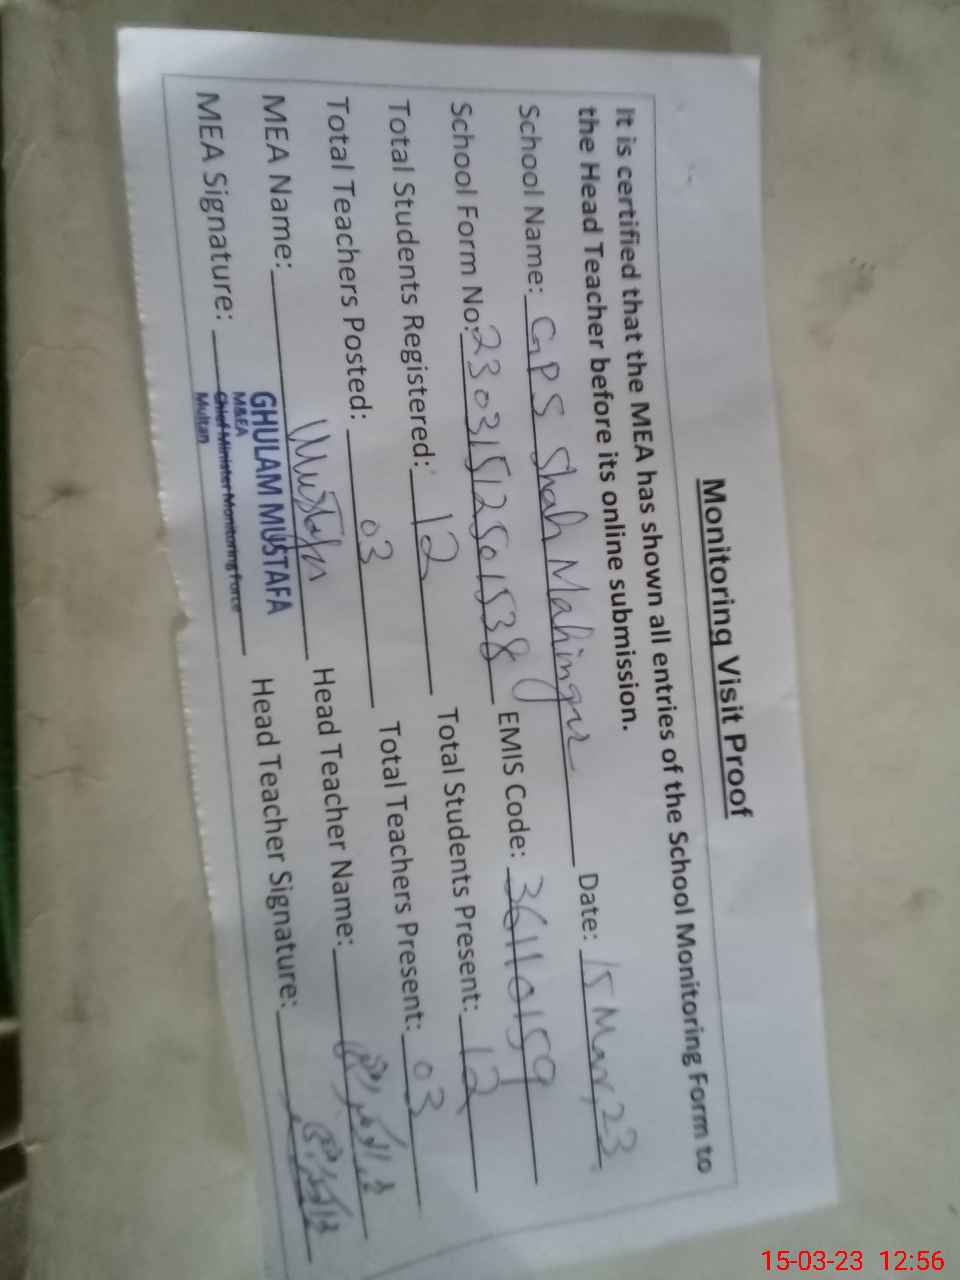 Monitoring Visit Proof
It is certified that the MEA has shown all entries of the School Monitoring Form to
the Head Teacher before its online submission.
School Name: GPS Shah Date: 15 Mar, 23
School Form No: 23031512501538 EMIS Code: 36110159
Total Students Registered: 12 Total Students Present: 12
Total Teachers Posted: 03 Total Teachers Present: 03
MEA Name: Mustafa Head Teacher Name:
MEA Signature: Head Teacher Signature:
GHULAM MUSTAFA
M&EA
Chief Minister Monitoring Force
Multan
15-03-23 12:56